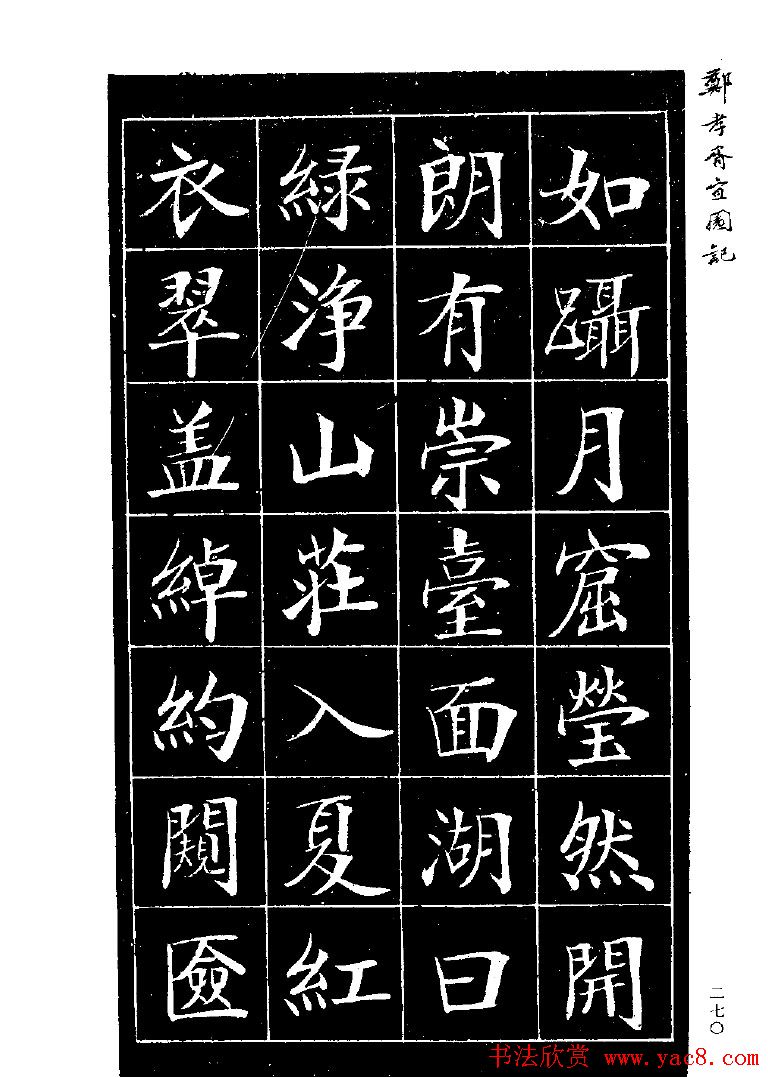 鄭孝胥宜園記
如躡月窟瑩然開
朗有崇臺面湖曰
綠淨山莊入夏紅
衣翠盖綽約闚匳
二七〇
书法欣赏 www.yac8.com